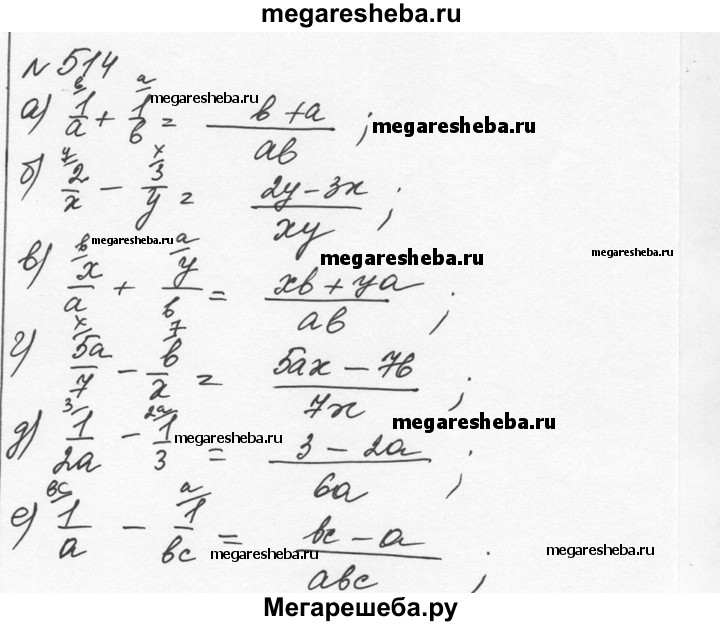 megaresheba.ru
№ 514
а) 1/a + 1/b = (b + a)/ab ;
б) 2/x − 3/y = (2y − 3x)/xy ;
в) x/a + y/b = (xb + ya)/ab ;
г) 5a/7 − b/x = (5ax − 7b)/7x ;
д) 1/2a − 1/3 = (3 − 2a)/6a ;
е) 1/a − 1/bc = (bc − a)/abc ;
megaresheba.ru
megaresheba.ru
megaresheba.ru
megaresheba.ru
megaresheba.ru
megaresheba.ru
megaresheba.ru
megaresheba.ru
megaresheba.ru
Мегарешеба.ру